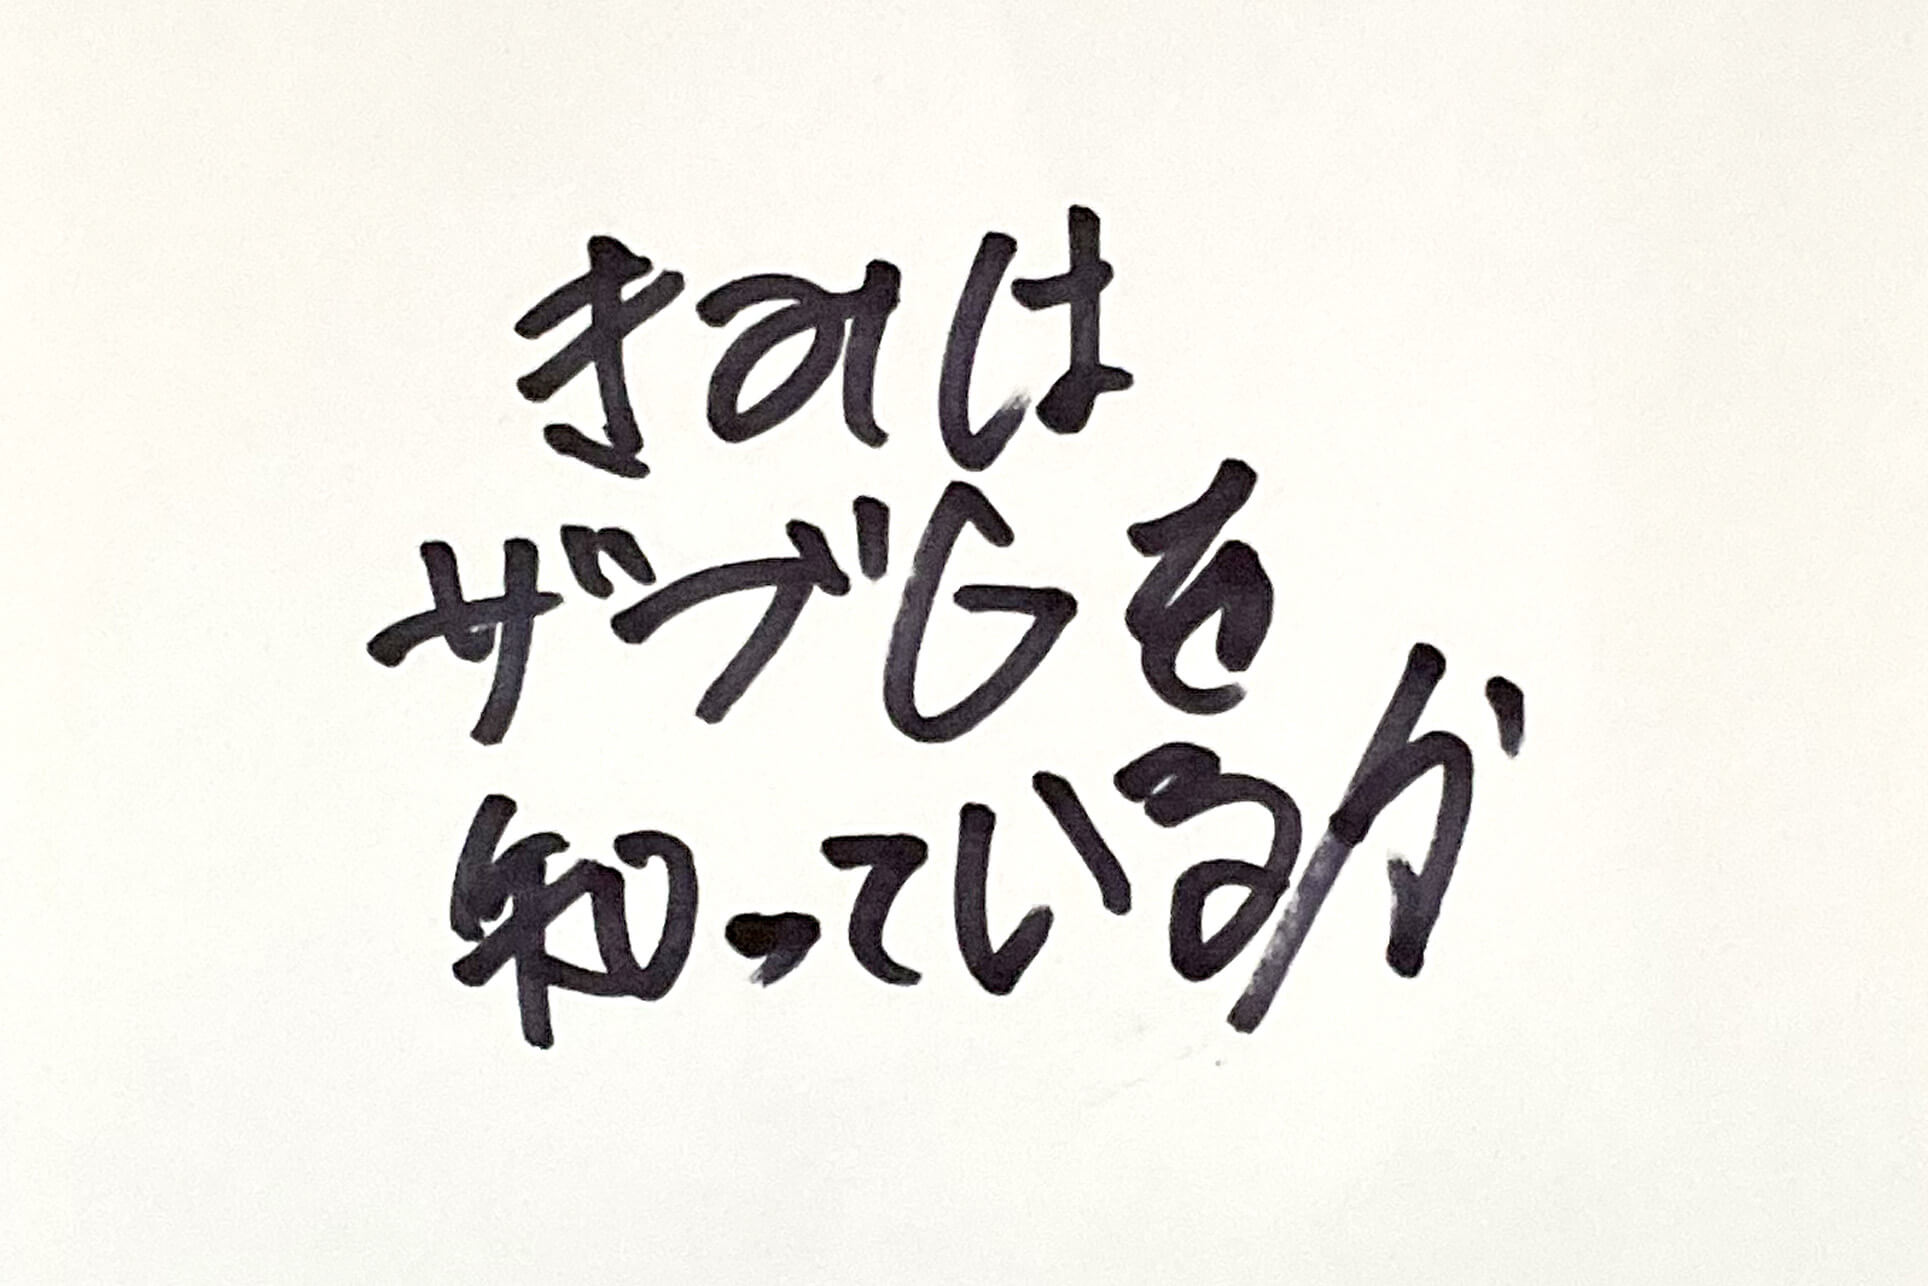 きみは
ザブGを
知っているか